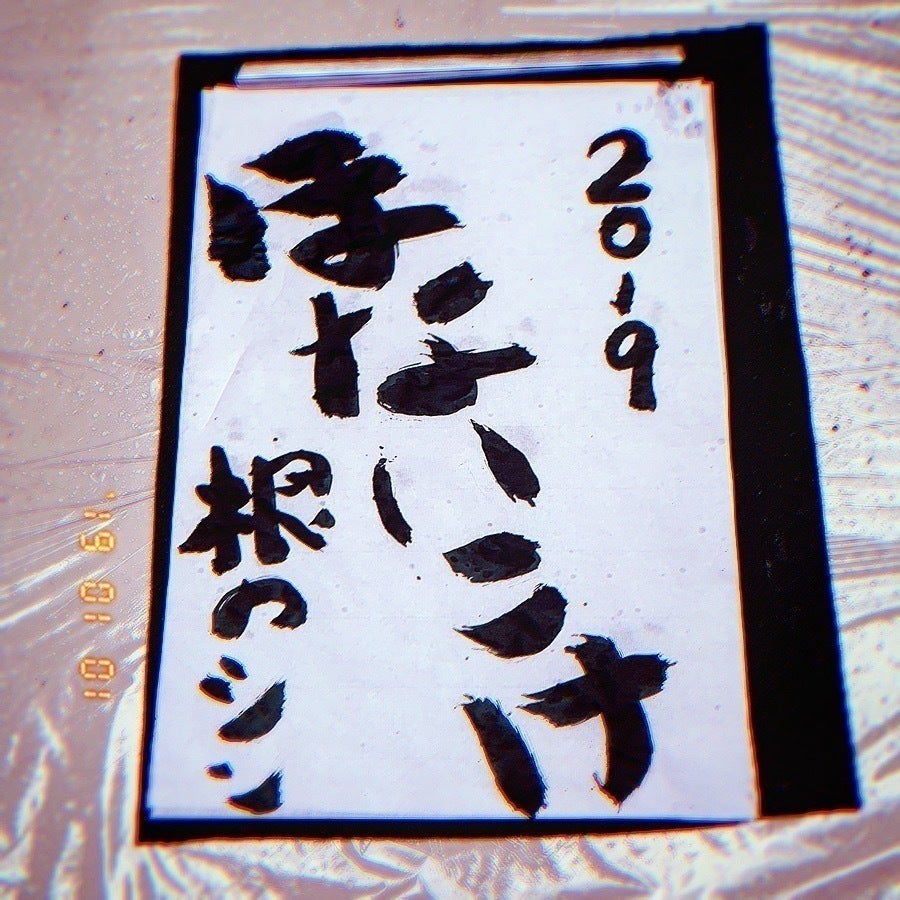 2019
ほないこけ
十根のジン
'19 01 01